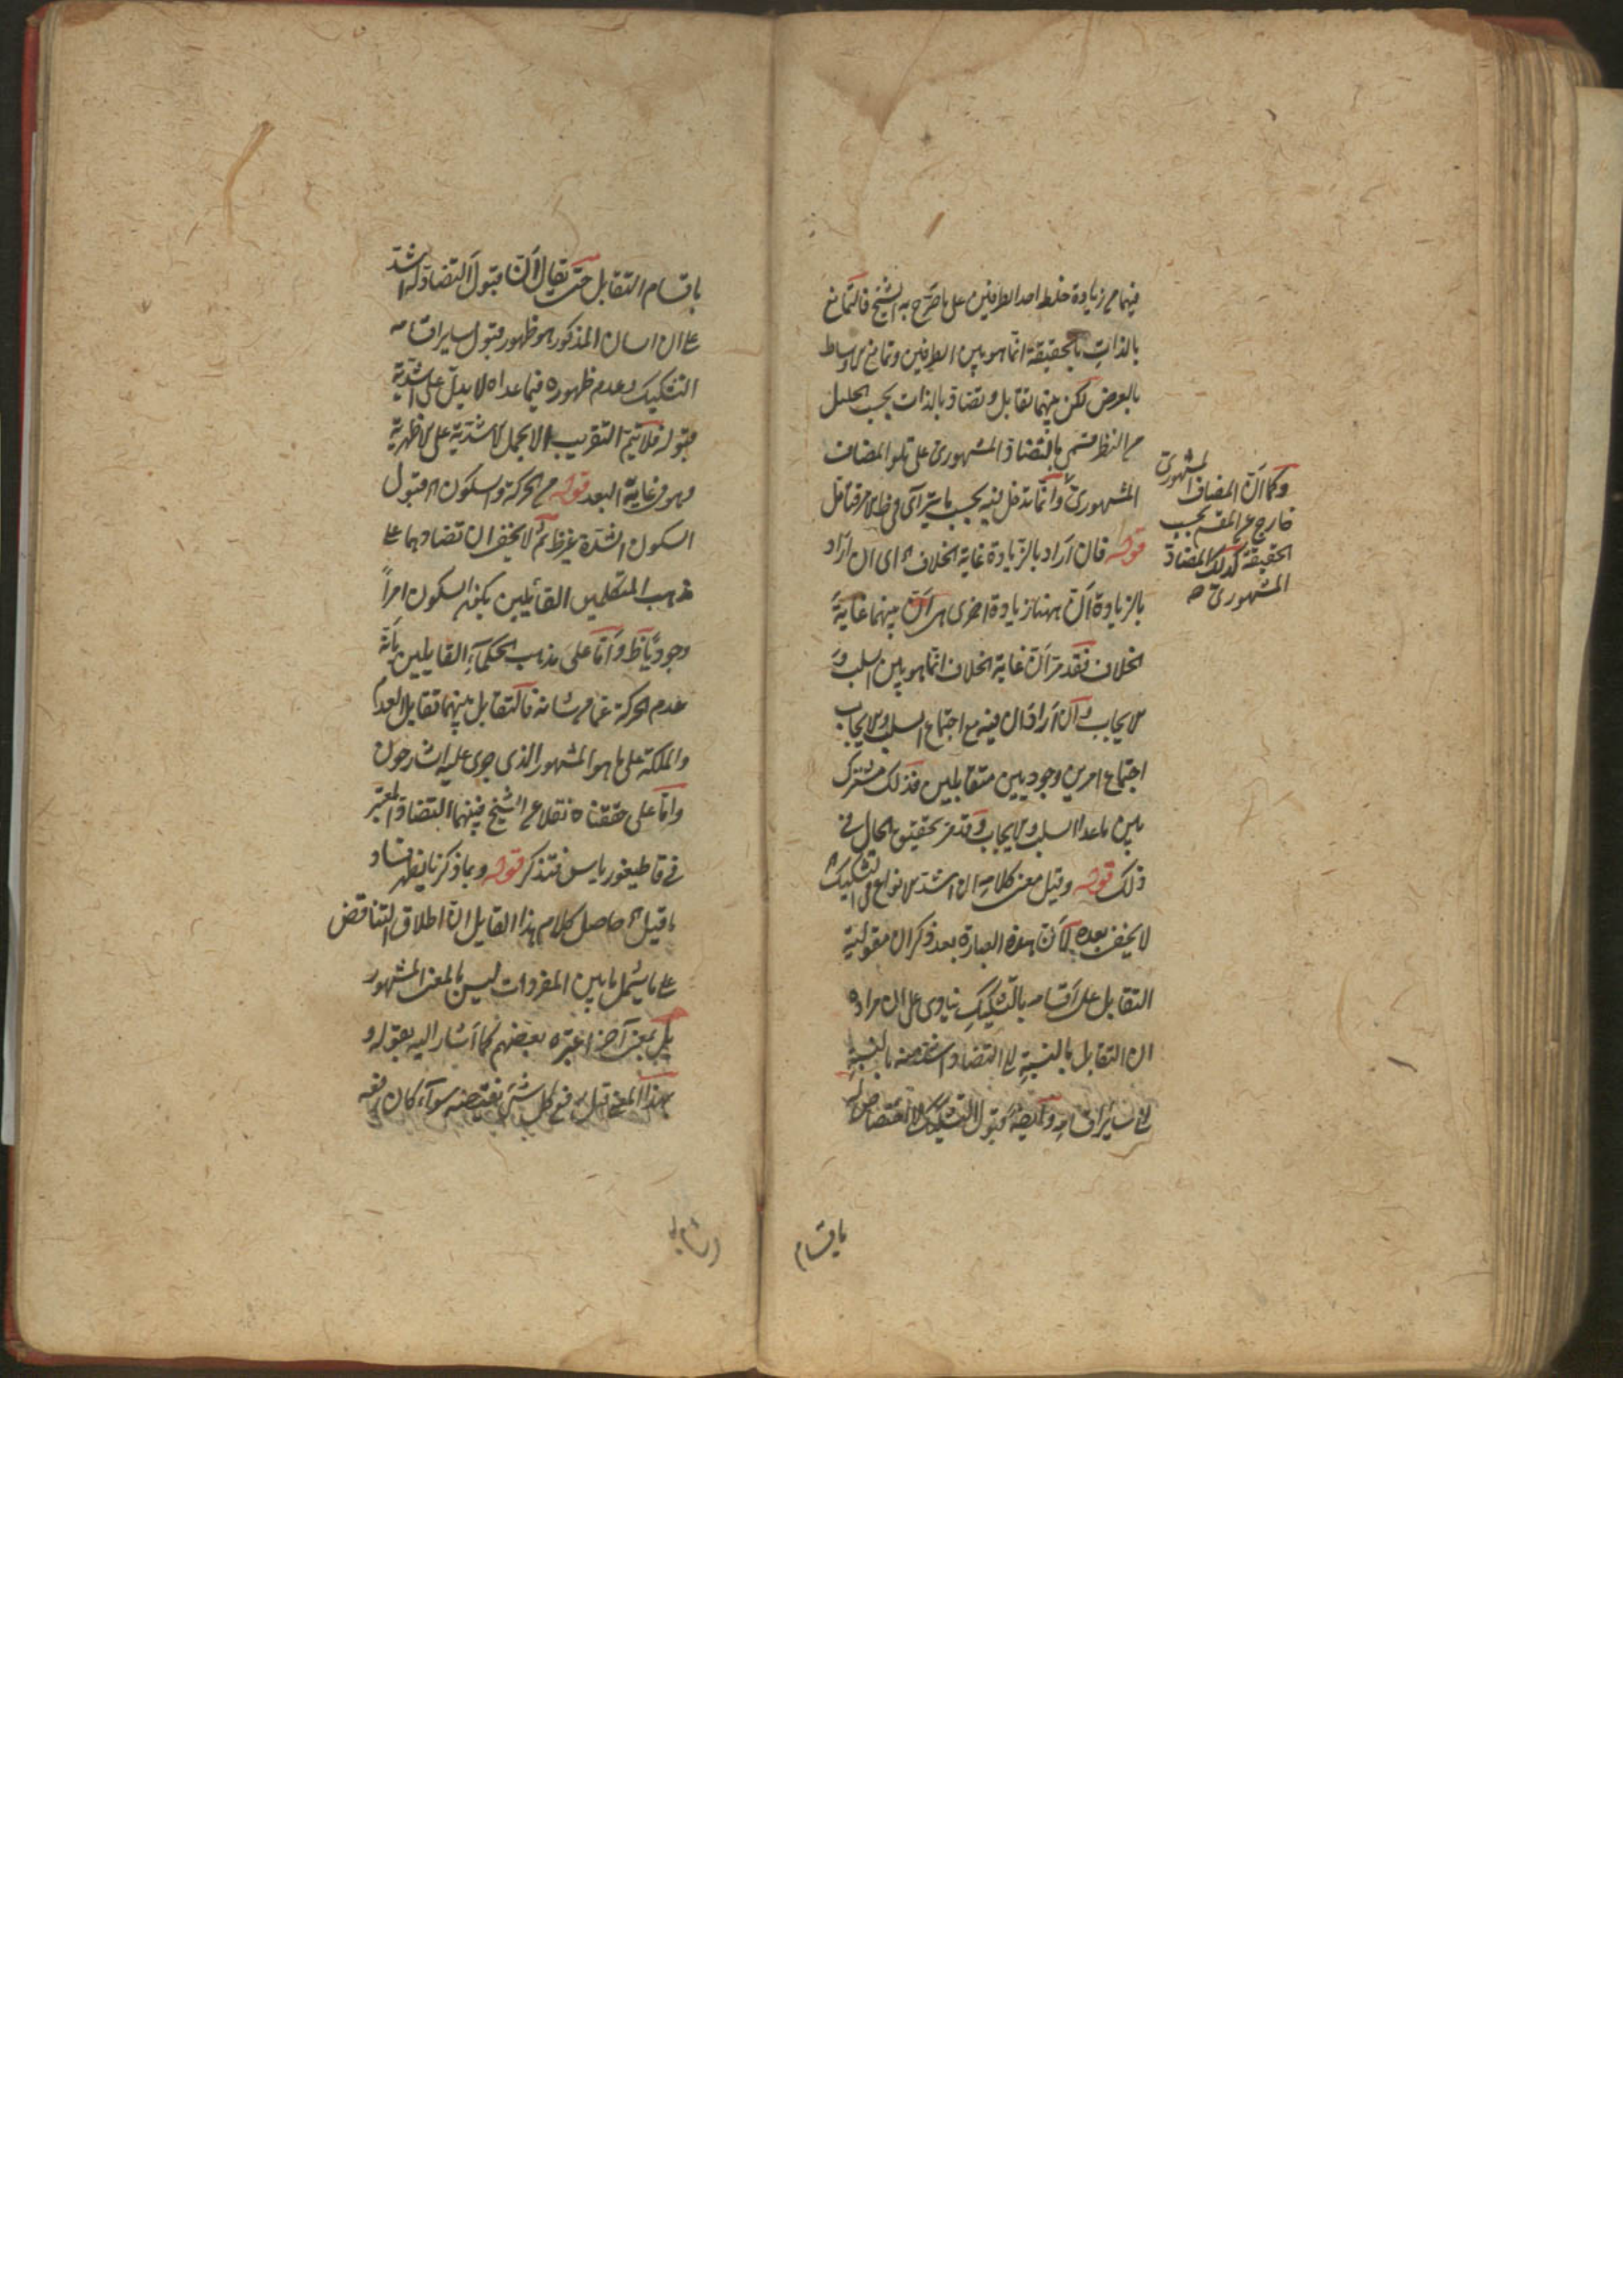 فيهما من زيادة خلط احد الطرفين على ما صرّح به الشيخ فالتمانع
بالذات بالحقيقة انما هو بين الطرفين وتمانع الاوساط
بالعرض لكن بينهما تقابل وتضاد بالذات بحسب الجليل
من النظر فسمّى بالتضاد المشهورى على تلو المضاف
المشهورىّ وانما تدخل فيه بحسب ما يترآى فى ظ الامر فتامّل
قوله فان اراد بالزيادة غاية الخلاف اه اى ان اراد
بالزيادة انّ ههنا زيادة اخرى هى انّ بينهما غاية
الخلاف فقد مرّ انّ غاية الخلاف انما هو بين السلب و
الايجاب وان اراد ان فيه مع اجتماع السلب والايجاب
اجتماع امرين وجوديين متقابلين فذلك مشترك
بين ما عدا السلب والايجاب وقد مر تحقيق الحال فى
ذلك قوله وقيل معنى كلامه ان اشد الانواع فى التشكيك اه
لا يخفى بعده لانّ هذه العبارة بعد ذكر ان مقولية
التقابل على اقسامه بالتشكيك ينادى على ان مراده
ان التقابل بالنسبة الى التضاد اشد منه بالنسبة
الى ساير اقسامه وايضا قبول التشكيك لا اختصاص له
وكما انّ المضاف المشهورىّ
خارج عن المقسم بحسب
الحقيقة كذلك المضاد
المشهورىّ صح
باقسام
باقسام التقابل حتى يقال انّ قبول التضاد له اشد
على ان اسان المذكور هو ظهور قبول ساير اقسامه
التشكيك وعدم ظهوره فيما عداه لا يدلّ على اشدّية
قبوله فلا يتم التقريب الا بحمل الاشدّية على الاظهرية
وهو فى غاية البعد قوله من الحركة والسكون اه قبول
السكون الشدة غير ظ ثم لا يخفى ان تضادهما على
مذهب المتكلمين القائلين بكون السكون امراً
وجودياً ظ وامّا على مذهب الحكماء القايلين بانّه
عدم الحركة عما من شانه فالتقابل بينهما تقابل العدم
والملكة على ما هو المشهور الذى جرى عليه الشارحون
وامّا على حققناه نقلا عن الشيخ فبينهما التضاد المعتبر
فى قاطيغورياس فتذكر قوله وبما ذكرنا يظهر فساد
ما قيل اه حاصل كلام هذا القايل انّ اطلاق التناقض
على ما يشمل ما بين المفردات ليس بالمعنى المشهور
بل بمعنى آخر اعتبره بعضهم كما اشار اليه بقوله و
بهذا المعنى قيل رفع كل شئ نقيضه سوآء كان رفعه